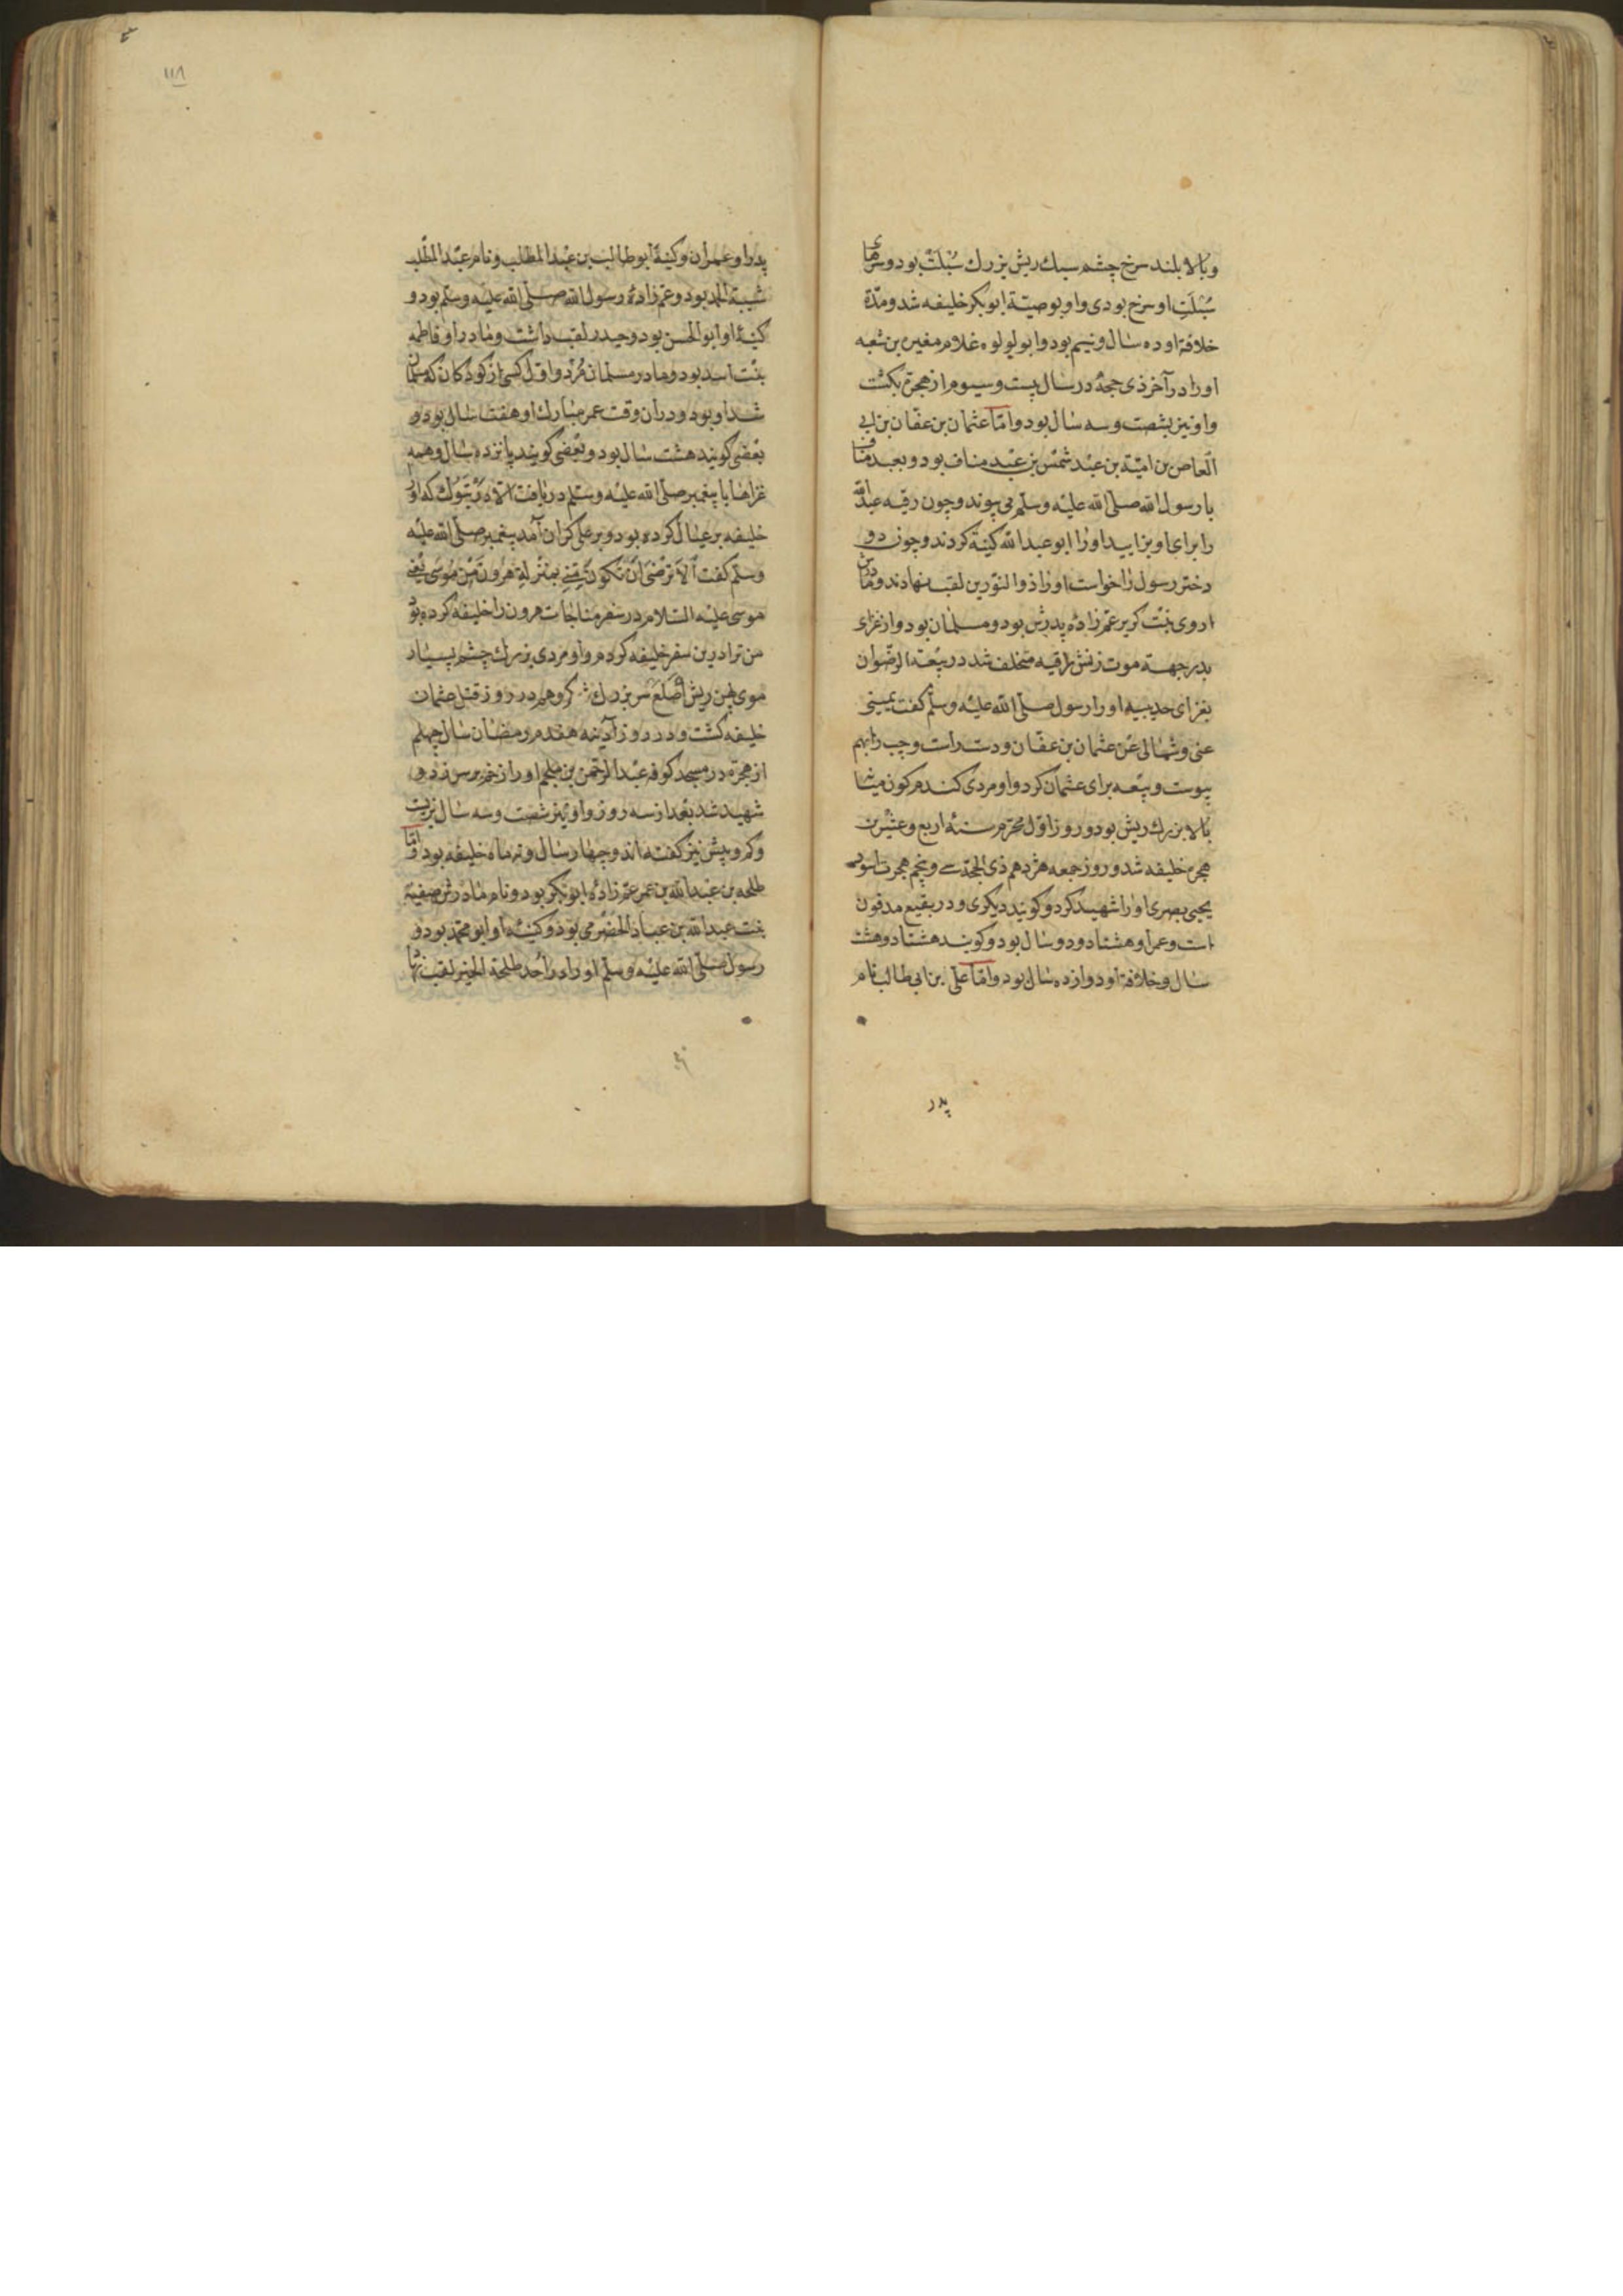 وبالا بلند سرخ چشم سبك ریش بزرك سُبلت بود و سرهای
سُبلت او سرخ بودی و او بوصیّة ابوبکر خلیفه شد و مدّة
خلافة او ده سال و نیم بود و ابو لولوه غلام مغیره بن شعبه
اورا در آخر ذی حجّه در سال بیست و سیوم از هجرة بکشت
و او نیز بشصت و سه سال بود و امّا عثمان بن عفّان بن ابی
العاص بن امیّة بن عبد شمس بن عبد مناف بود و بعبد مناف
با رسول الله صلّی الله علیه وسلّم می پیوندد و چون رقیه عبد الله
را برای او بزایید اورا ابو عبد الله کنیة کردند و چون دو
دختر رسول را خواست اورا ذو النّورین لقب نهادند و مادرش
اروی بنت کریز عمّ زاده پدرش بود و مسلمان بود و از غزای
بدر جهة موت زنش رقیه متخلف شد در بیعة الرّضوان
بغزای حدیبیه اورا رسول صلّی الله علیه وسلّم کفت یمینی
عنی و شمالی عن عثمان بن عفّان و دست راست و چپ را بهم
پیوست و بیعه برای عثمان کرد و او مردی کندم کون میانه
بالا بزرك ریش بود و روز اوّل محرّم سنه اربع و عشرین
هجرة خلیفه شد و روز جمعه هژدهم ذی الحجّة سی و پنجم هجرت
یحیی بصری اورا شهید کرد و کویند دیکری و در بقیع مدفون
است و عمر او هشتاد و دو سال بود و کویند هشتاد و هشت
سال و خلافة او دوازده سال بود و امّا علی بن ابی طالب نام
پدر
۱۱۸
پدر او عمران و کنیة ابو طالب بن عبد المطّلب و نام عبد المطّلب
شیبة الحمد بود و عمّ زاده رسول الله صلّی الله علیه وسلّم بود و
کنیة او ابو الحسن بود و حیدر لقب داشت و مادر او فاطمه
بنت اسد بود و مادر مسلمان مُرد و اوّل کسی از کودکان که مسلمان
شد او بود و دران وقت عمر مبارك او هفت سال بود و
بعضی کویند هشت سال بود و بعضی کویند پانزده سال و همه
غزاها با پیغمبر صلّی الله علیه وسلّم دریافت الّا تبوك که اورا
خلیفه بر عیال کرده بود و بر علی کران آمد پیغمبر صلّی الله علیه
وسلّم کفت اَلا ترضی اَن تکون منّی بمنزلة هرون من موسی یعنی
موسی علیه السّلام در سفر مناجات هرون را خلیفه کرده بود
من ترا درین سفر خلیفه کردم و او مردی بزرك چشم بسیار
موی پهن ریش اصلع سر بزرك و هم در روز قتل عثمان
خلیفه کشت و در روز آدینه هفدهم رمضان سال چهلم
از هجرة در مسجد کوفه عبد الرّحمن بن ملجم اورا زخم بر سر زد و
شهید شد بعد از سه روز و او نیز شصت و سه سال بزیست
و کم و بیش نیز کفته اند و چهار سال و نه ماه خلیفه بود و امّا
طلحه بن عبد الله بن عمر عمّ زاده ابوبکر بود و نام مادرش صفیّة
بنت عبد الله بن عباد الحضرمی بود و کنیة او ابو محمّد بود و
رسول صلّی الله علیه وسلّم اورا در اُحد طلحة الخیر لقب نهاد